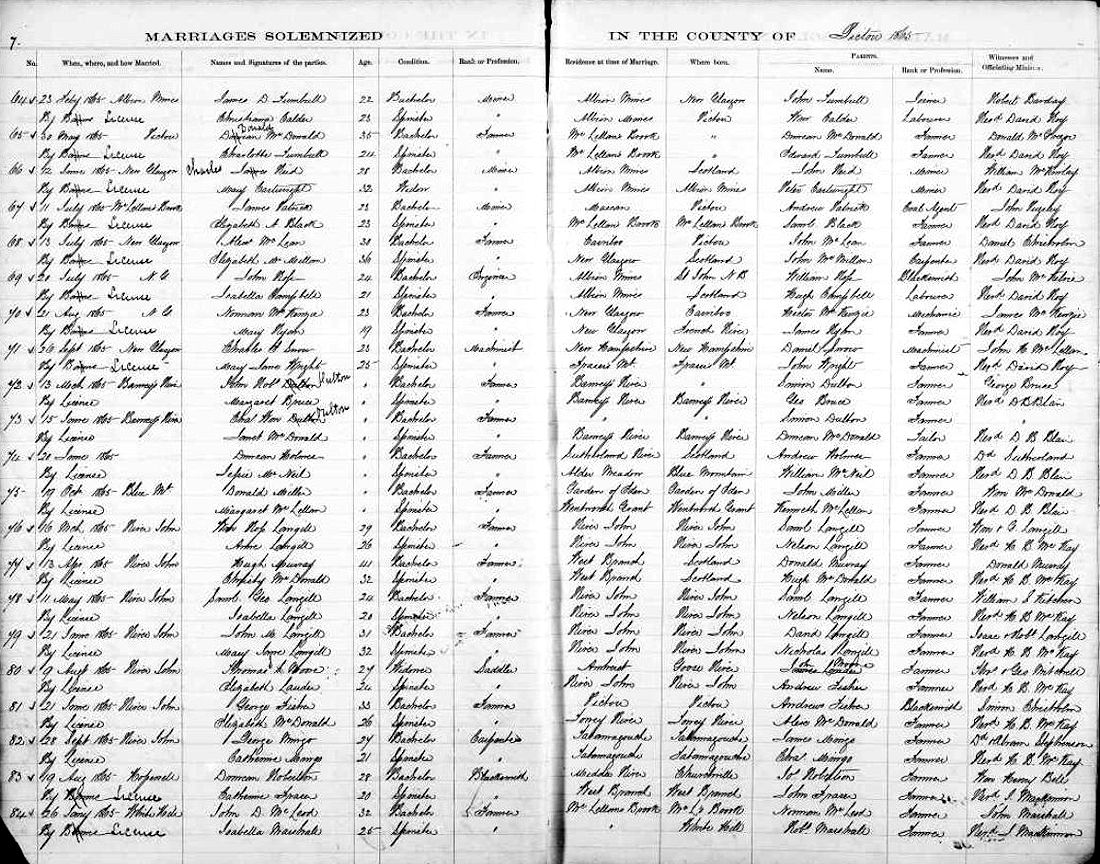 7.
MARRIAGES SOLEMNIZED IN THE COUNTY OF Pictou 1865
No. When, where, and how Married. Names and Signatures of the parties. Age. Condition. Rank or Profession. Residence at time of Marriage. Where born. PARENTS. Name. Rank or Profession. Witnesses and Officiating Minister.
64 23 Feby 1865 Albion Mines James D Turnbull 22 Bachelor Miner Albion Mines New Glasgow John Turnbull Joiner Robert Barclay
By License Calder 23 Spinster " Albion Mines Pictou Wm Calder Labourer Revd David Roy
65 30 May 1865 Pictou Donald McDonald 35 Bachelor Farmer McLellans Brook " Duncan McDonald Farmer Donald McGregor
By License Charlotte Turnbull 24 Spinster " McLellans Brook " Edward Turnbull Farmer Revd David Roy
66 12 June 1865 New Glasgow Charles Reid 28 Bachelor Miner Albion Mines Scotland John Reid Miner William McKinlay
By License Mary Cartwright 32 Widow " Albion Mines Albion Mines Peter Cartwright Miner Revd David Roy
67 11 July 1865 McLellans Brook James Patrick 23 Bachelor Miner Pictou Andrew Patrick Coal Agent John
By License Elizabeth A Black 23 Spinster " McLellans Brook McLellans Brook Saml Black Farmer Revd David Roy
68 13 July 1865 New Glasgow Alexr McLean 38 Bachelor Farmer Cariboo Pictou John McLean Farmer Daniel Chisholm
By License Elizabeth McMillan 36 Spinster " New Glasgow Scotland John McMillan Carpenter Revd David Roy
69 20 July 1865 N G John Rofs 24 Bachelor Engineer Albion Mines St John N B William Rofs Blacksmith John
By License Isabella Campbell 21 Spinster " Albion Mines Scotland Hugh Campbell Labourer Revd David Roy
70 21 Aug 1865 N G Norman McKenzie 23 Bachelor Farmer New Glasgow Cariboo Hector McKenzie Mechanic James McKenzie
By License Mary Ryan 19 Spinster " New Glasgow French River James Ryan Farmer Revd David Roy
71 26 Sept 1865 New Glasgow Charles H Snow 23 Bachelor Machinist New Hampshire New Hampshire Daniel Snow Machinist John H McLellan
By License Mary Jane Wright 25 Spinster " Frasers Mt. Frasers Mt. John Wright Farmer Revd David Roy
72 13 Mch 1865 Barneys River John Robt Dutton Hutton " Bachelor Farmer Barneys River " Simon Dutton Farmer George Bruce
By License Margaret Bruce " Spinster " Barneys River Barneys River Geo Bruce Farmer Revd D B Blair
73 15 June 1865 Barneys River Wm Dutton " Bachelor Farmer " " Simon Dutton Farmer "
By License Janet McDonald " Spinster " Barneys River Barneys River Duncan McDonald Tailor Revd D B Blair
74 20 June 1865 Duncan Holmes " Bachelor Farmer Sutherland River Scotland Andrew Holmes Farmer Dd Sutherland
By License Jessie McNeil " Spinster " Alder Meadow Blue Mountain William McNeil Farmer Revd D B Blair
75 19 Oct 1865 Blue Mt Donald Miller " Bachelor Farmer Garden of Eden Garden of Eden John Miller Farmer Wm McDonald
By License Margaret McLellan " Spinster " Wentworth Grant Wentworth Grant Kenneth McLellan Farmer Revd D B Blair
76 16 Mch 1865 River John Wm Rofs Langill 29 Bachelor Farmer River John River John Saml Langill Farmer Wm & G Langill
By License Anne Langill 26 Spinster " River John River John Nelson Langill Farmer Revd H B McKay
77 13 Apr 1865 River John Hugh Murray 41 Bachelor Farmer West Branch Scotland Donald Murray Farmer Donald Murray
By License McDonald 32 Spinster " West Branch Scotland Hugh McDonald Farmer Revd H B McKay
78 11 May 1865 River John Saml Geo Langill 24 Bachelor Farmer River John River John Saml Langill Farmer William S Kitchin
By License Isabella Langill 20 Spinster " River John River John Nelson Langill Farmer Revd H B McKay
79 21 June 1865 River John John M Langill 31 Bachelor Farmer River John River John David Langill Farmer Isaac & Robt Langill
By License Mary Jane Langill 32 Spinster " River John River John Nicholas Langill Farmer Revd H B McKay
80 9 Augt 1865 River John Thomas S Moore 27 Widower Saddler Amherst Goose River John Moore Farmer Thos & Geo Mitchell
By License Elizabeth Lauder 24 Spinster " River John River John Andrew Fisher Farmer Revd H B McKay
81 21 June 1865 River John George Fisher 33 Bachelor Farmer Pictou Pictou Andrew Fisher Blacksmith Simon Chisholm
By License Elizabeth McDonald 26 Spinster " Toney River Toney River Alexr McDonald Farmer Revd H B McKay
82 28 Sept 1865 River John George Mingo 24 Bachelor Carpenter Tatamagouche Tatamagouche James Mingo Farmer Dd & Abram Stephenson
By License Catherine Mingo 21 Spinster " Tatamagouche Tatamagouche Mingo Farmer Revd H B McKay
83 19 Aug 1865 Hopewell Duncan Robertson 28 Bachelor Blacksmith Middle River Churchville Jo Robertson Farmer Wm Henry Bell
By License Catherine Fraser 20 Spinster " West Branch West Branch John Fraser Farmer Revd J MacKinnon
84 26 Jany 1865 White Hill John D McLeod 32 Bachelor Farmer McLellans Brook McL's Brook Norman McLeod Farmer John Marshall
By License Isabella Marshall 25 Spinster " " White Hill Robt Marshall Farmer Revd J MacKinnon